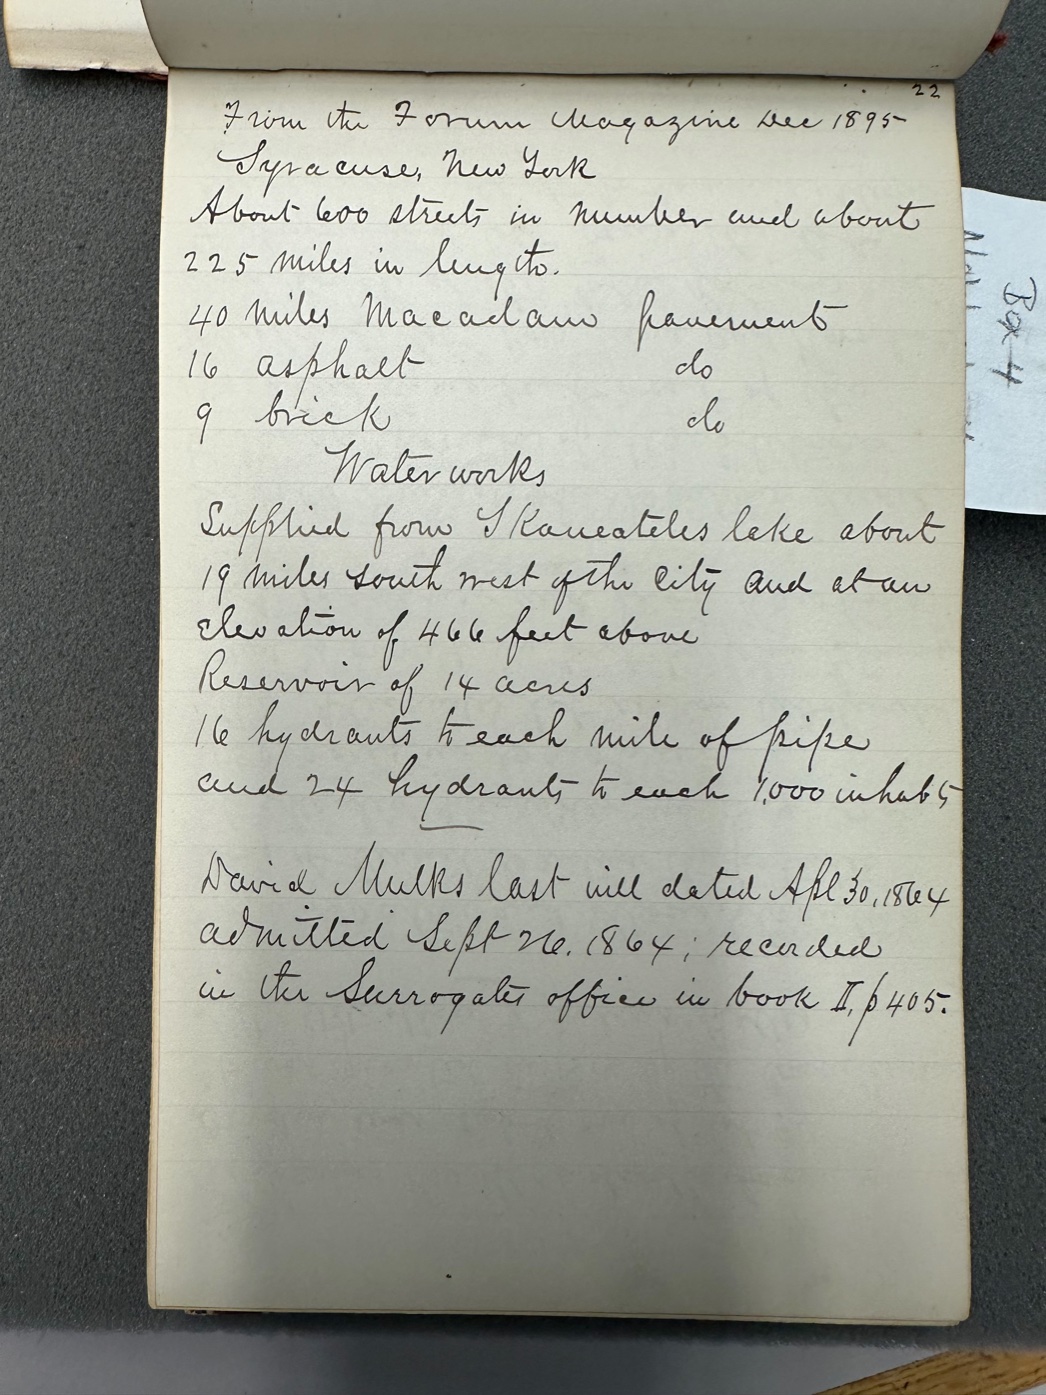 22
From the Forum Magazine Dec 1895
Syracuse, New York
About 600 streets in number and about
225 miles in length.
40 miles Macadam pavement
16 asphalt do
9 brick do
Water works
Supplied from Skaneateles lake about
19 miles south west of the City and at an
elevation of 466 feet above
Reservoir of 14 acres
16 hydrants to each mile of pipe
and 24 hydrants to each 1,000 inhabts
David Mulks last will dated Apl 30, 1864
admitted Sept 26. 1864; recorded
in the Surrogates office in book II, p 405.
Box 4